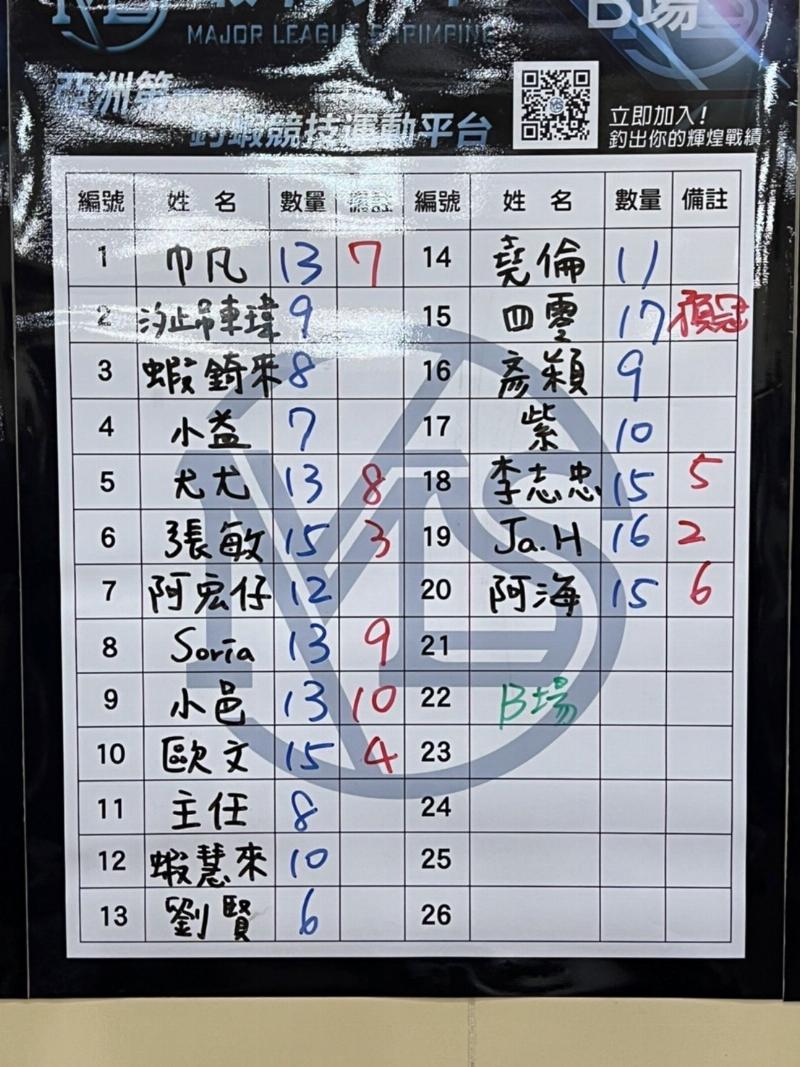 B場
MAJOR LEAGUE SHRIMPING
亞洲第一
釣蝦競技運動平台
立即加入!
釣出你的輝煌戰績
編號 姓名 數量 備註 編號 姓名 數量 備註
1 巾凡 13 7 14 堯倫 11
2 汐止吊車瑋 9 15 四零 17 預冠
3 蝦錡來 8 16 彥穎 9
4 小益 7 17 紫 10
5 尤尤 13 8 18 李志忠 15 5
6 張敏 15 3 19 Ja.H 16 2
7 阿宏仔 12 20 阿海 15 6
8 Soria 13 9 21
9 小邑 13 10 22 B場
10 歐文 15 4 23
11 主任 8 24
12 蝦慧來 10 25
13 劉賢 6 26